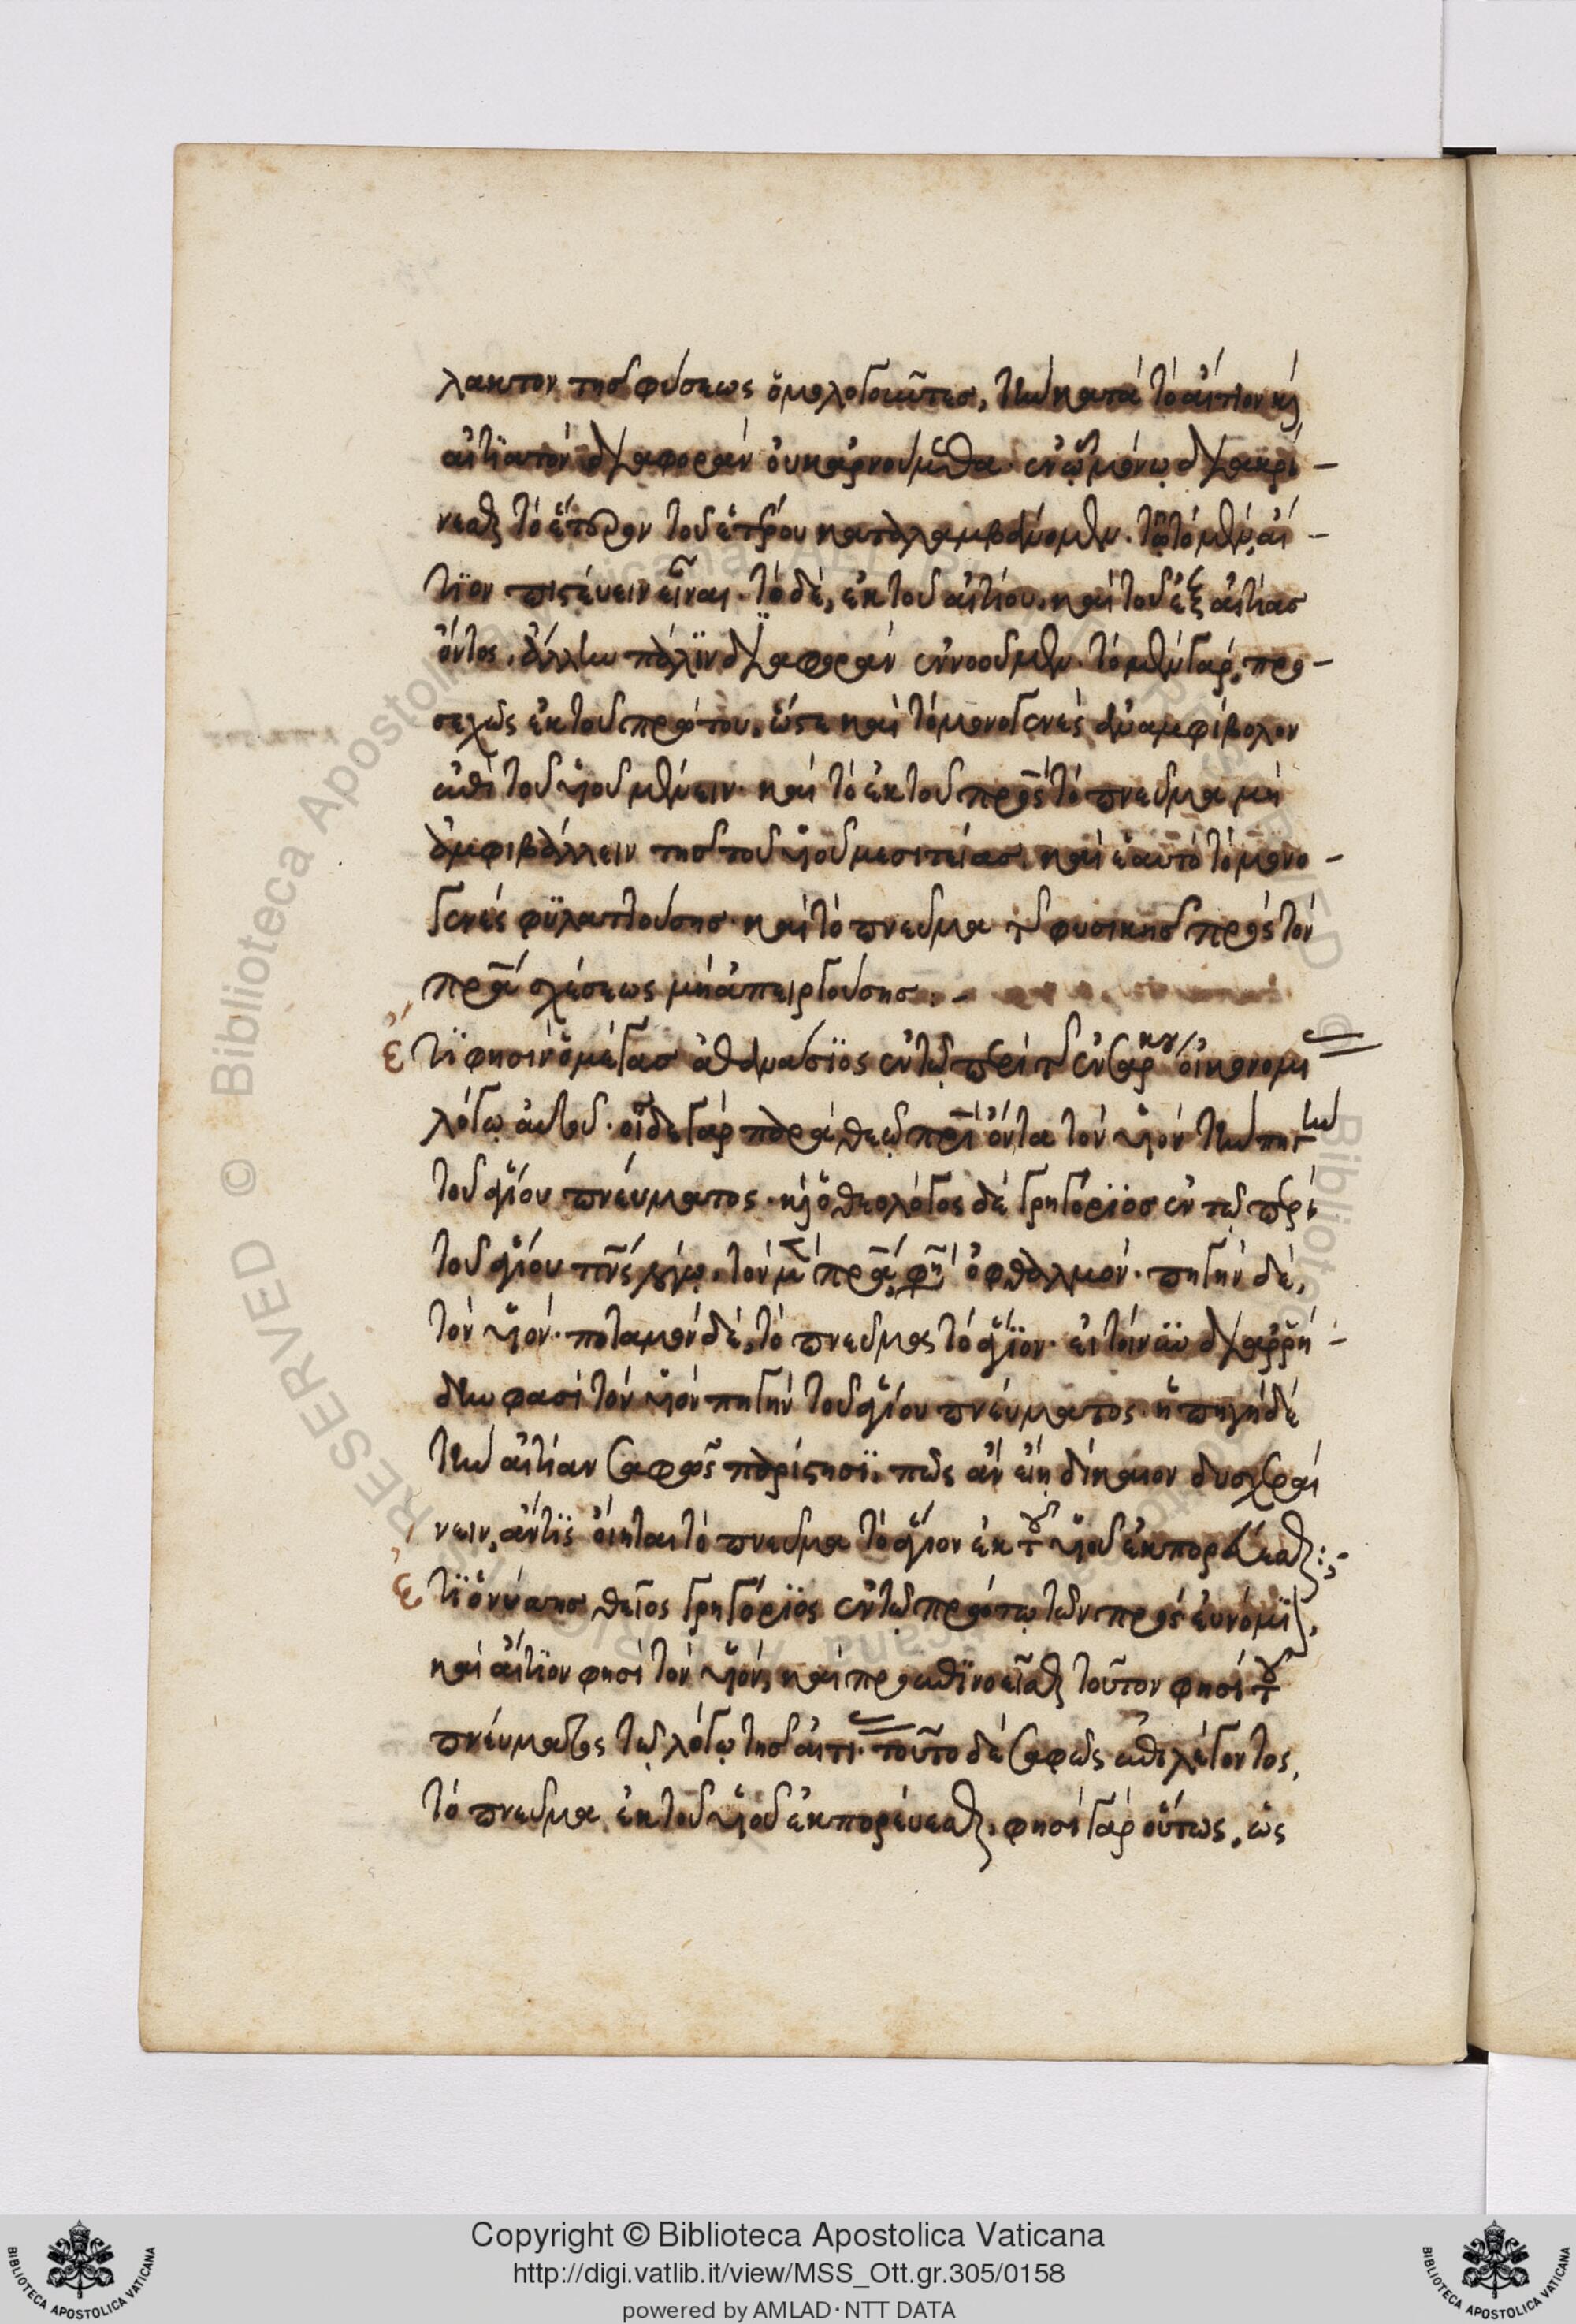 λακτον τῆς φύσεως ὁμολογοῦντες, τὴν κατὰ τὸ αἴτιον κ(αὶ)
αἰτιατὸν διαφορὰν οὐκ ἀρνούμεθα· ἐν ᾧ μόνῳ διακρί–
νεσθαι τὸ ἕτερον τοῦ ἑτέρου καταλαμβάνομεν. τῷ τὸ μὲν αἴ–
τιον πιστεύειν εἶναι· τὸ δὲ, ἐκ τοῦ αἰτίου. καὶ τοῦ ἐξ αἰτίας
ὄντος, ἄλλην πάλιν διαφορὰν ἐννοοῦμεν· τὸ μὲν γὰρ, προ–
σεχῶς ἐκ τοῦ πρώτου, ὥστε καὶ τὸ μονογενὲς ἀναμφίβολον
ἐπὶ τοῦ υἱοῦ μένειν· καὶ τὸ ἐκ τοῦ πρς τὸ πνεῦμα μὴ
ἀμφιβάλλειν τῆς τοῦ υἱοῦ μεσιτείας, καὶ ἑαυτὸ τὸ μονο–
γενὲς φυλαττούσης· καὶ τὸ πνεῦμα τ(ῆς) φυσικῆς πρὸς τὸν
πρα σχέσεως μὴ ἀπειργούσης.
ἔ τι φησὶν ὁ μέγας ἀθανάσιος ἐν τῷ περὶ τ(ῆς) ἐνσάρκου οἰκονομι
λόγῳ αὐτοῦ. οἶδε γὰρ παρὰ θεῷ πρι ὄντα τὸν υἱὸν τὴν πηγὴν
τοῦ ἁγίου πνεύματος. κ(αὶ) ὁ θεολόγος δὲ γρηγόριος ἐν τῷ περὶ
τοῦ ἁγίου πνς λόγῳ. τὸν μ(ὲν) πρα, φη ὀφθαλμόν· πηγὴν δὲ,
τὸν υἱόν· ποταμὸν δὲ, τὸ πνεῦμα τὸ ἅγιον. εἰ τοίνυν διαρρή–
δην φασὶ τὸν υἱὸν πηγὴν τοῦ ἁγίου πνεύματος· ἡ πηγὴ δὲ
τὴν αἰτίαν σαφῶς παρίστησι. πῶς ἂν εἴη δίκαιον δυσχεραί
νειν, ἄν τις οἴηται τὸ πνεῦμα τὸ ἅγιον ἐκ τοῦ υἱοῦ ἐκπορεύεσθαι:–
ἔ τι ὁ νύσσης θεῖος γρηγόριος ἐν τῷ πρώτῳ τῶν πρὸς εὐνόμι(ον),
καὶ αἴτιον φησὶ τὸν υἱὸν, καὶ προεπινοεῖσθαι τοῦτον φησὶ τοῦ
πνεύματος τῷ λόγῳ τῆς αἰτι· τοῦτο δὲ σαφῶς ἐπιλέγοντος,
τὸ πνεῦμα ἐκ τοῦ υἱοῦ ἐκπορεύεσθαι. φησὶ γὰρ οὕτως, ὡς
Copyright © Biblioteca Apostolica Vaticana
http://digi.vatlib.it/view/MSS_Ott.gr.305/0158
powered by AMLAD·NTT DATA